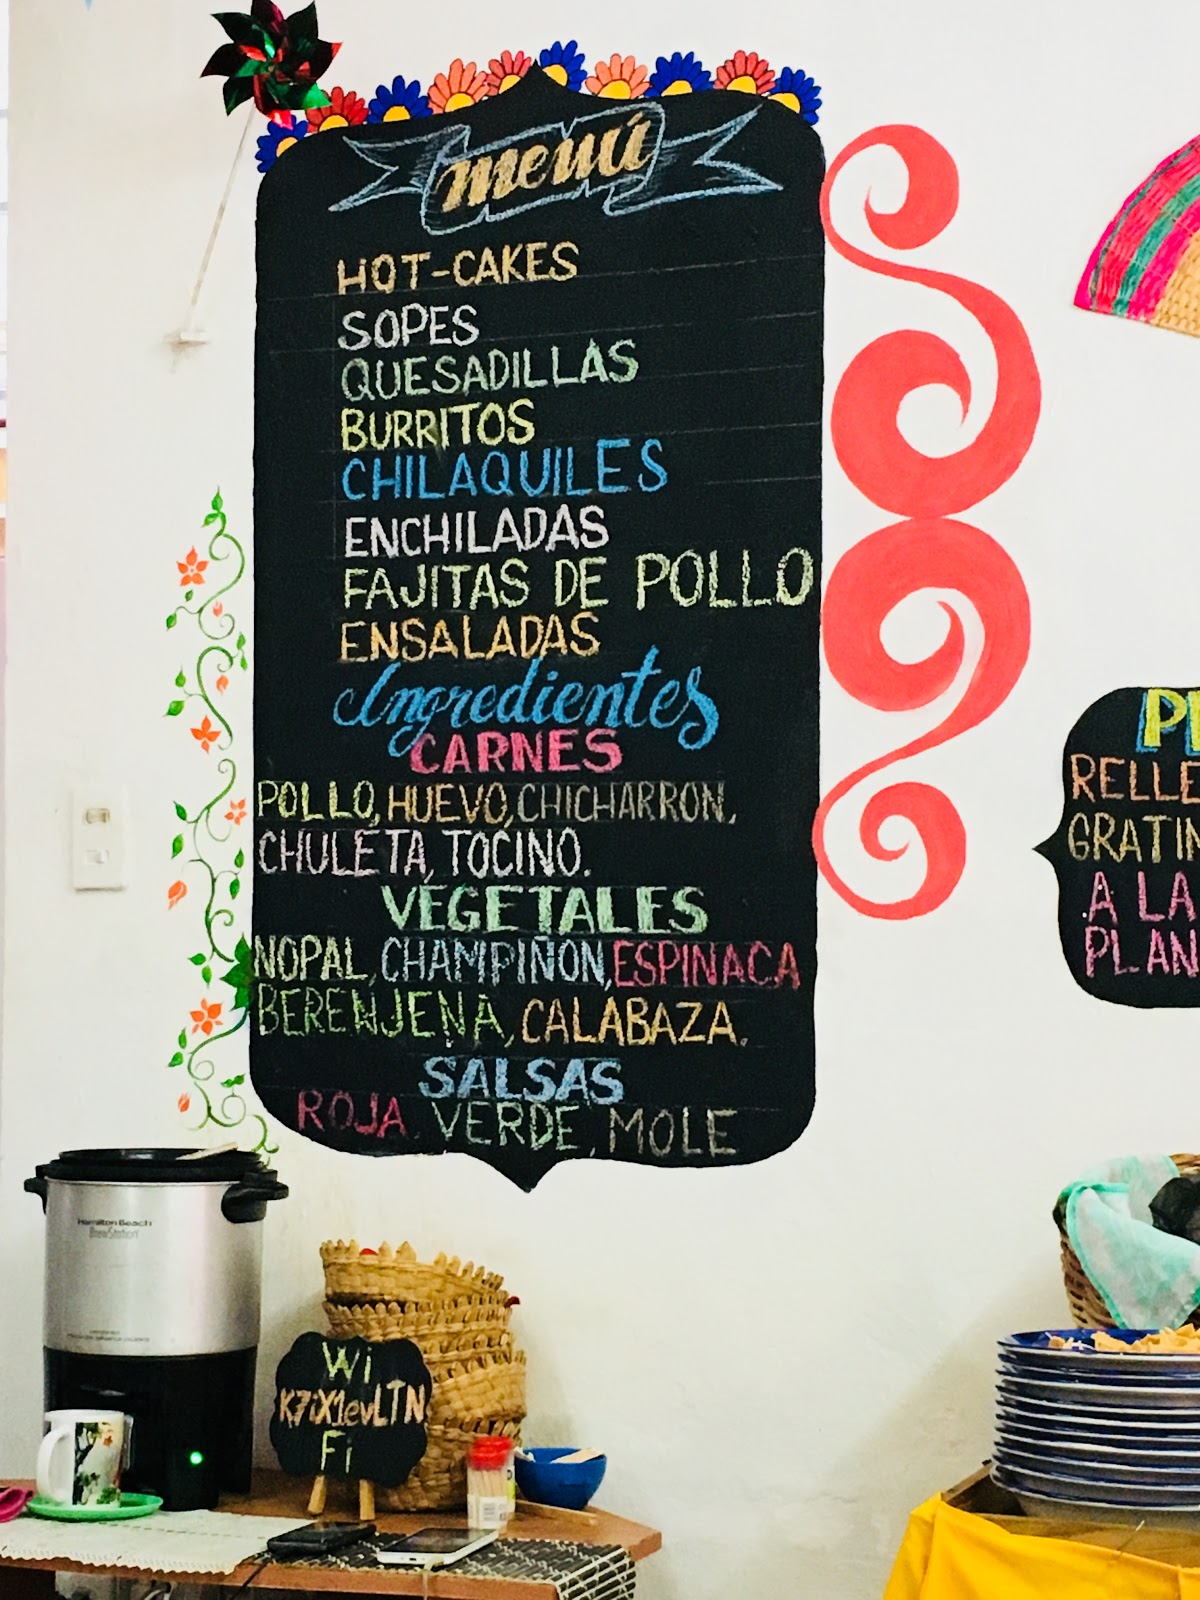 menú
HOT-CAKES
SOPES
QUESADILLAS
BURRITOS
CHILAQUILES
ENCHILADAS
FAJITAS DE POLLO
ENSALADAS
Ingredientes
CARNES
POLLO, HUEVO, CHICHARRON,
CHULETA, TOCINO.
VEGETALES
NOPAL, CHAMPIÑON, ESPINACA
BERENJENA, CALABAZA.
SALSAS
ROJA, VERDE, MOLE
RELLE
GRATIN
A LA
PLAN
Hamilton Beach
BrewStation
Wi
K7iX1evLTN
Fi